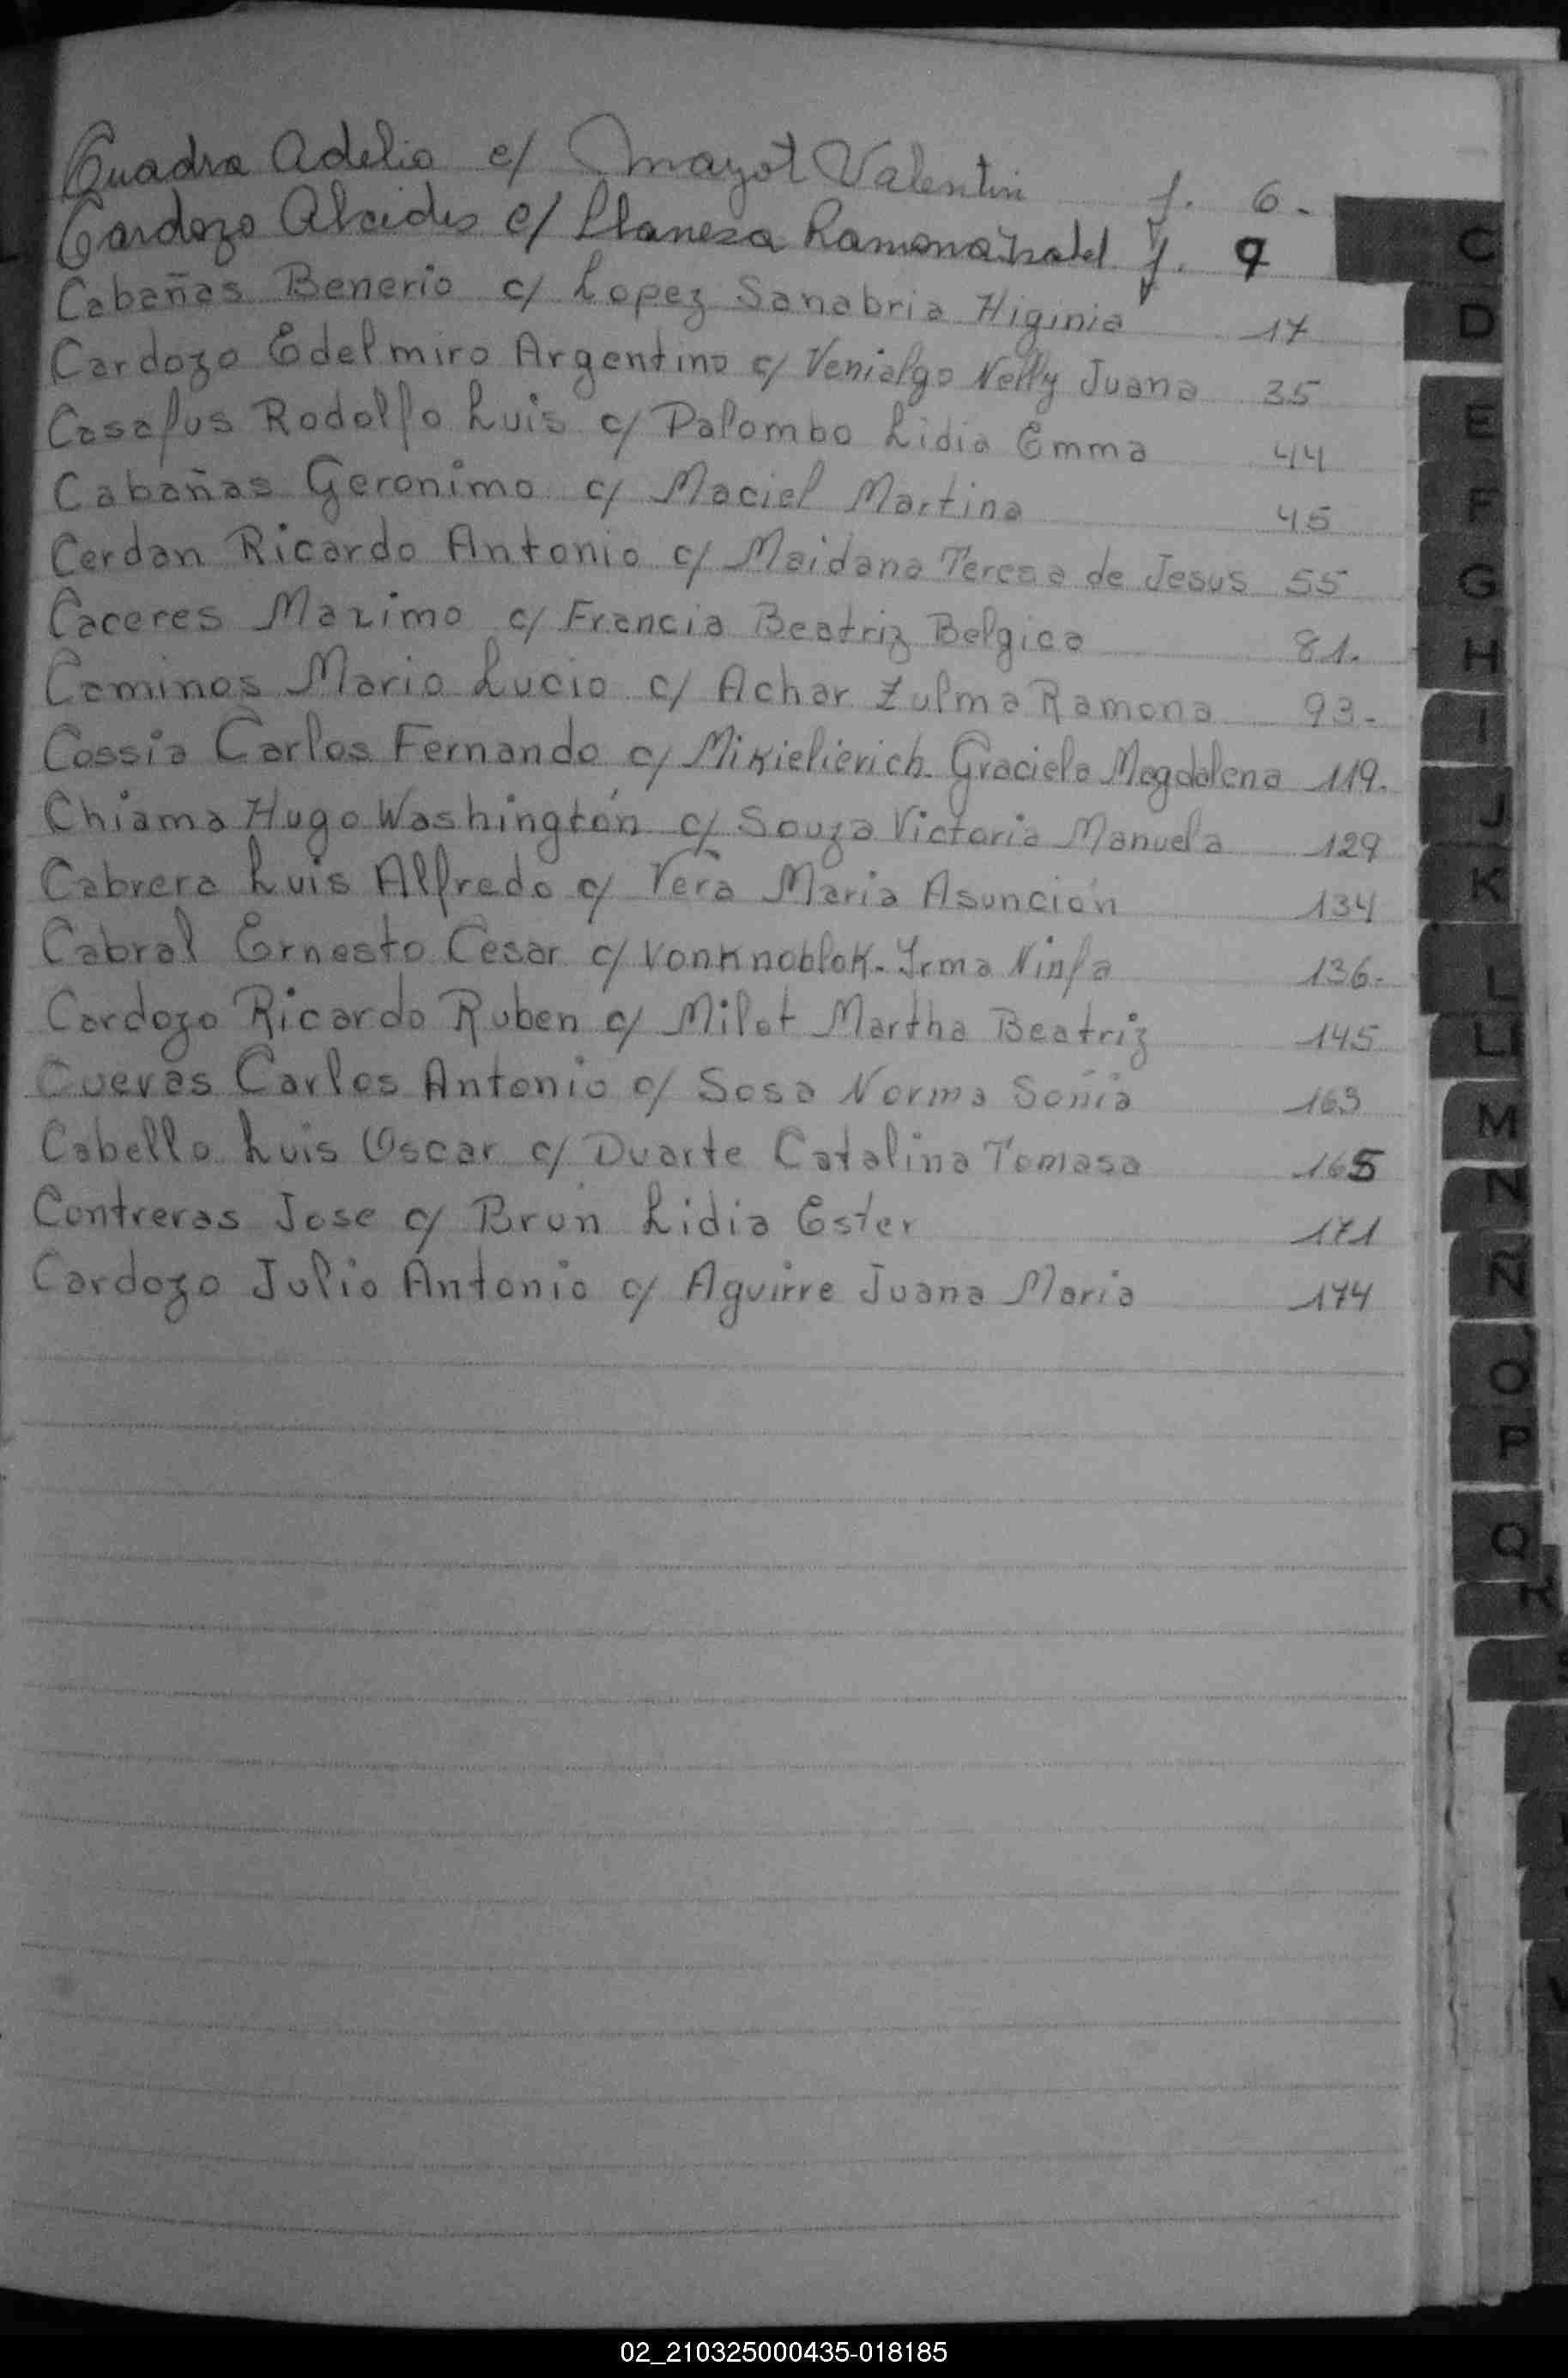 Cuadra Adelio c/ Mayot Valentin f. 6.
Cardozo Alcides c/ Llaneza Ramona Isabel f. 9
Cabañas Benerio c/ Lopez Sanabria Higinia 17
Cardozo Edelmiro Argentino c/ Venialgo Nelly Juana 35
Casafus Rodolfo Luis c/ Palombo Lidia Emma 44
Cabañas Geronimo c/ Maciel Martina 45
Cerdan Ricardo Antonio c/ Maidana Teresa de Jesus 55
Caceres Maximo c/ Francia Beatriz Belgica 81.
Caminos Mario Lucio c/ Achar Zulma Ramona 93-
Cossia Carlos Fernando c/ Mikielievich Graciela Magdalena 119.
Chiama Hugo Washingtón c/ Souza Victoria Manuela 129
Cabrera Luis Alfredo c/ Vera Maria Asunción 134
Cabral Ernesto Cesar c/ Vonknoblok - Irma Ninfa 136-
Cardozo Ricardo Ruben c/ Milot Martha Beatriz 145
Cuevas Carlos Antonio c/ Sosa Norma Sonia 163
Cabello Luis Oscar c/ Duarte Catalina Tomasa 165
Contreras Jose c/ Brun Lidia Ester 171
Cardozo Julio Antonio c/ Aguirre Juana Maria 174
C
D
E
F
G
H
I
J
K
L
LL
M
N
Ñ
O
P
Q
02_210325000435-018185